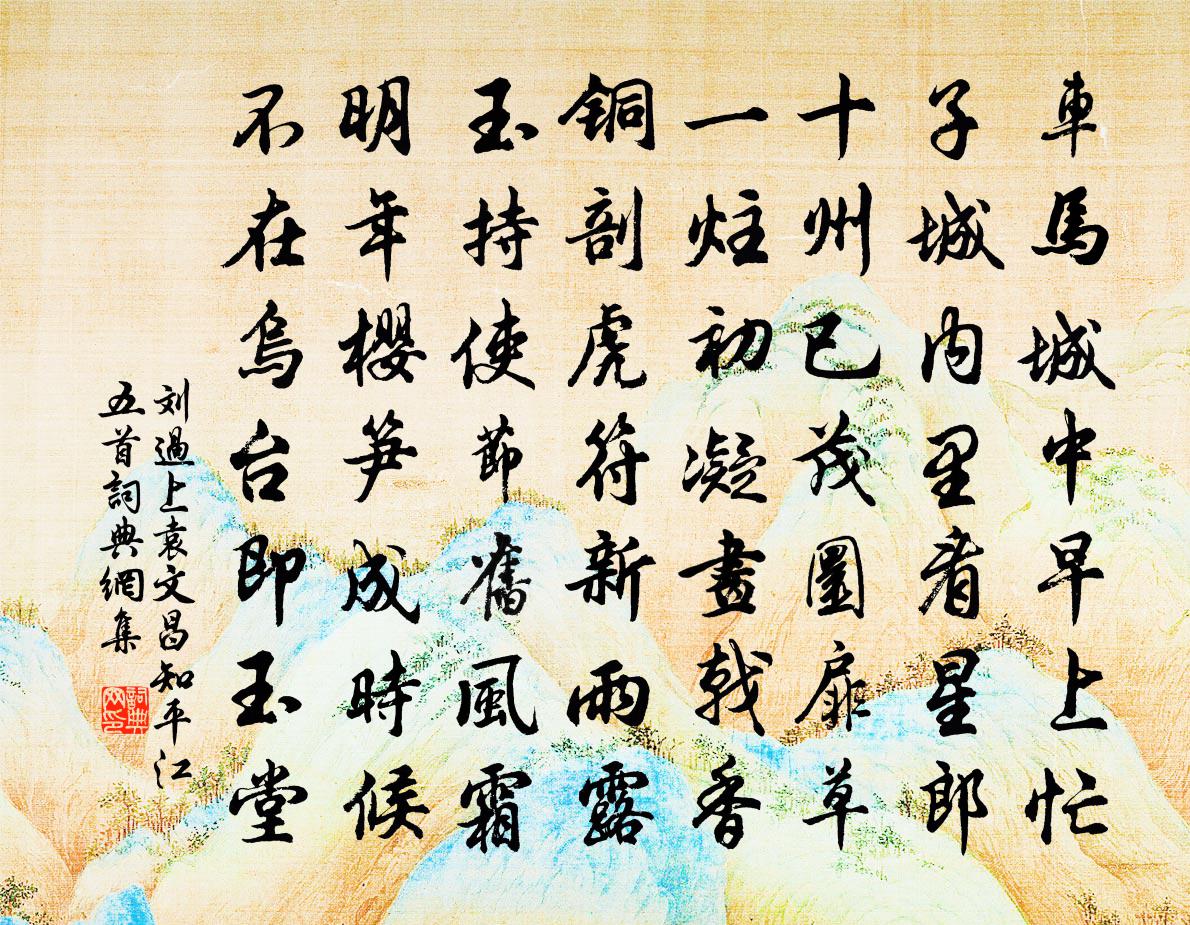 車馬城中早上忙
子城內里看星郎
十州已茂圜扉草
一炷初凝畫戟香
銅剖虎符新雨露
玉持使節舊風霜
明年櫻笋成時候
不在烏台即玉堂
刘過上袁文昌知平江
五首詞典網集
詞典網印